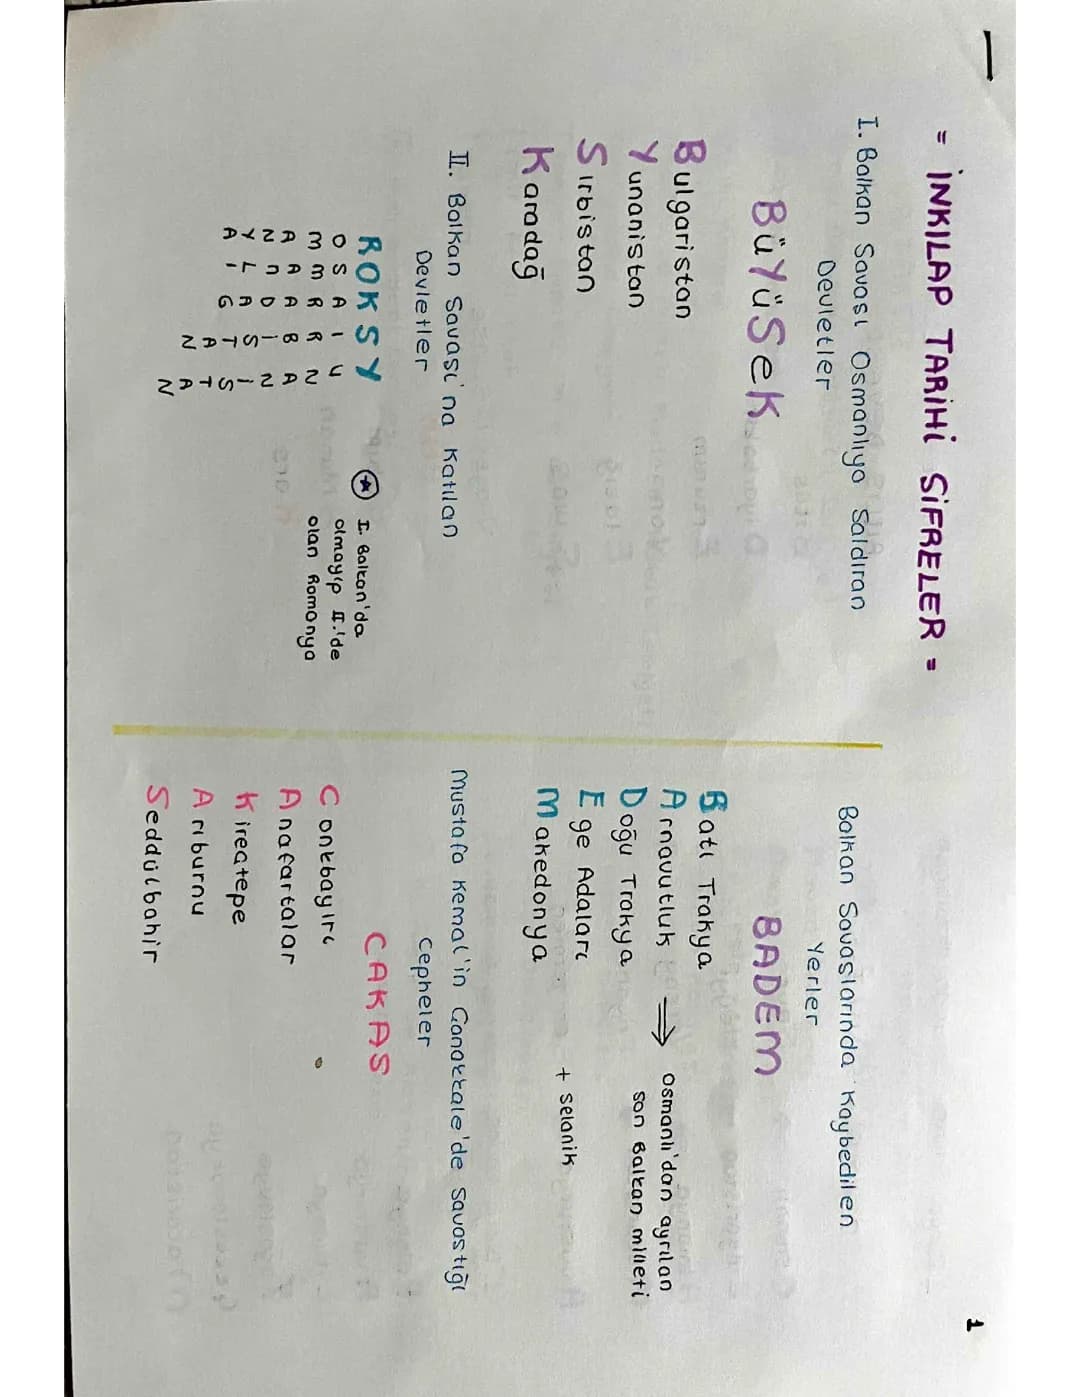 1
= İNKILAP TARİHİ ŞİFRELER =
I. Balkan Savaşı Osmanlıya Saldıran
Devletler
BÜYÜSeK
Bulgaristan
Yunanistan
Sırbistan
Karadağ
II. Balkan Savaşı'na Katılan
Devletler
ROKSY
ROMANYA
OSMANLI
KARADAĞ
SIRBİSTAN
YUNANİSTAN
I. Balkan'da
olmayıp II.'de
olan Romanya
Balkan Savaşlarında Kaybedilen
Yerler
BADEM
Batı Trakya
Arnavutluk ⇒ Osmanlı'dan ayrılan
son Balkan milleti
Doğu Trakya
Ege Adaları
Makedonya + Selanik
Mustafa Kemal'in Çanakkale'de Savaştığı
Cepheler
CAKAS
Conkbayırı
Anafartalar
Kireçtepe
Arıburnu
Seddülbahir